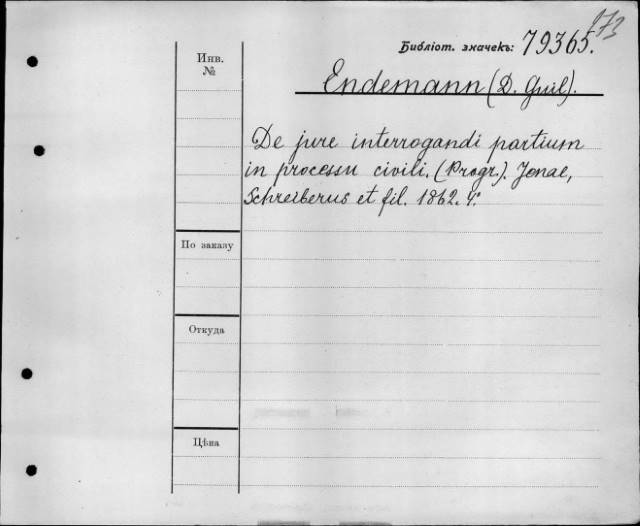 173
Библіот. значекъ: 79365.
Инв.
№
Endemann (D. Guil).
De jure interrogandi partium
in processu civili. (Progr.). Jenae,
Schreiberus et fil. 1862. 4.
По заказу
Откуда
Цѣна